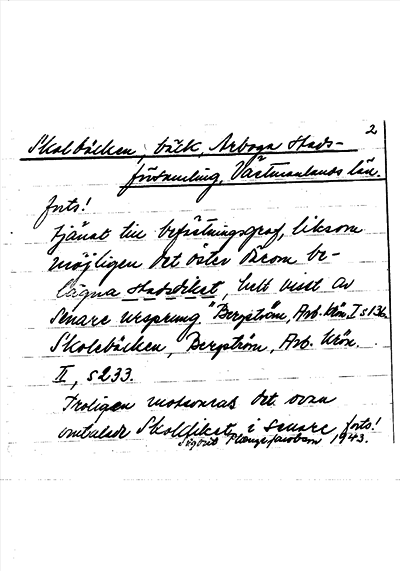 2
Skolbäcken, bäck, Arboga Stads-
församling, Västmanlands län.
forts!
tjänat till befästningsgraf, liksom
möjligen det öster därom be-
lägna Stadsdiket, helt visst av
senare ursprung." Bergström, Arb. Krön. I s 136.
Skolebäcken, Bergström, Arb. Krön.
II, s 233.
Troligen motsvaras det ovan
omtalade Skoldiket, i senare forts!
Sigurd 1943.